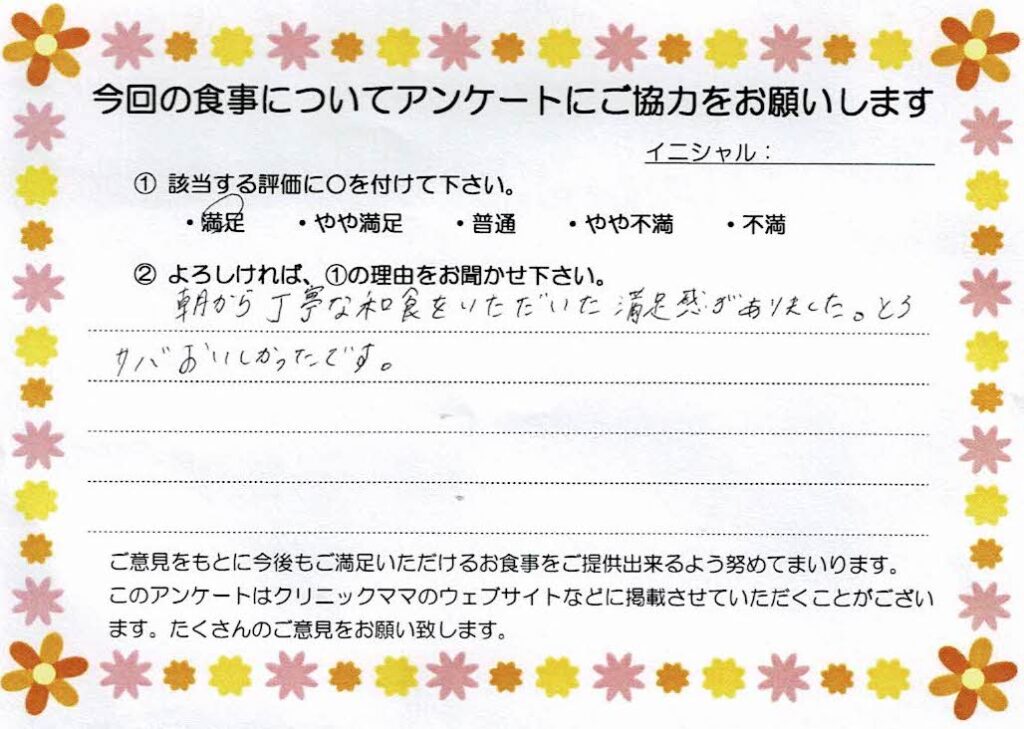 今回の食事についてアンケートにご協力をお願いします
イニシャル：
① 該当する評価に○を付けて下さい。
・満足 ・やや満足 ・普通 ・やや不満 ・不満
② よろしければ、①の理由をお聞かせ下さい。
朝から丁寧な和食をいただいた満足感がありました。とろ
サバおいしかったです。
ご意見をもとに今後もご満足いただけるお食事をご提供出来るよう努めてまいります。
このアンケートはクリニックママのウェブサイトなどに掲載させていただくことがござい
ます。たくさんのご意見をお願い致します。